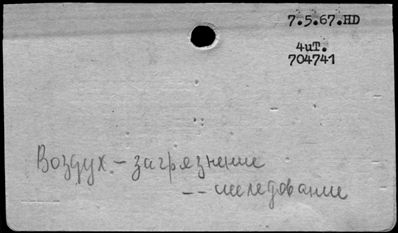 7.5.67.HD
4иТ.
704741
Воздух. - загрязнение
-- исследование